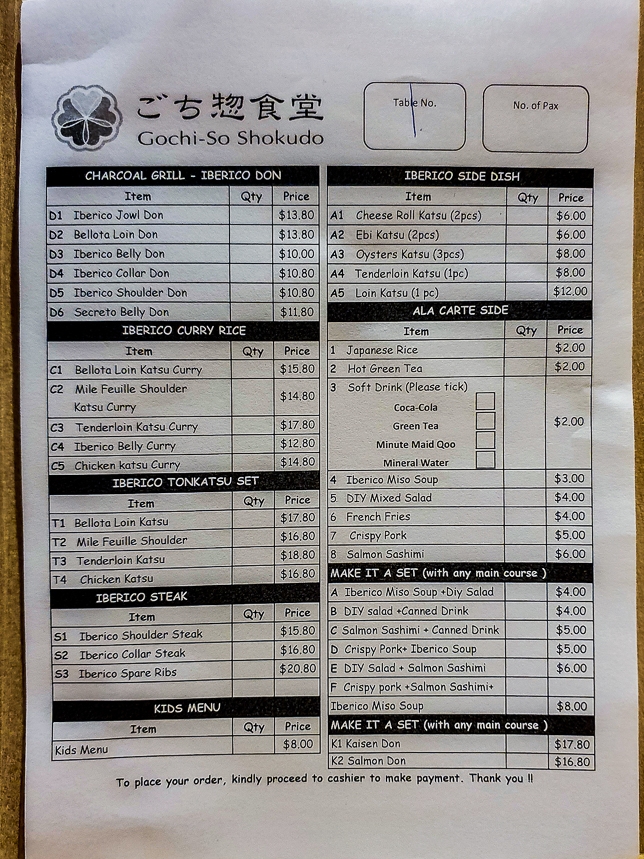 ごち惣食堂
Gochi-So Shokudo
Table No.
No. of Pax
CHARCOAL GRILL - IBERICO DON
Item Qty Price
D1 Iberico Jowl Don $13.80
D2 Bellota Loin Don $13.80
D3 Iberico Belly Don $10.00
D4 Iberico Collar Don $10.80
D5 Iberico Shoulder Don $10.80
D6 Secreto Belly Don $11.80
IBERICO CURRY RICE
Item Qty Price
C1 Bellota Loin Katsu Curry $15.80
C2 Mile Feuille Shoulder
Katsu Curry $14.80
C3 Tenderloin Katsu Curry $17.80
C4 Iberico Belly Curry $12.80
C5 Chicken katsu Curry $14.80
IBERICO TONKATSU SET
Item Qty Price
T1 Bellota Loin Katsu $17.80
T2 Mile Feuille Shoulder $16.80
T3 Tenderloin Katsu $18.80
T4 Chicken Katsu $16.80
IBERICO STEAK
Item Qty Price
S1 Iberico Shoulder Steak $15.80
S2 Iberico Collar Steak $16.80
S3 Iberico Spare Ribs $20.80
KIDS MENU
Item Qty Price
Kids Menu $8.00
IBERICO SIDE DISH
Item Qty Price
A1 Cheese Roll Katsu (2pcs) $6.00
A2 Ebi Katsu (2pcs) $6.00
A3 Oysters Katsu (3pcs) $8.00
A4 Tenderloin Katsu (1pc) $8.00
A5 Loin Katsu (1 pc) $12.00
ALA CARTE SIDE
Item Qty Price
1 Japanese Rice $2.00
2 Hot Green Tea $2.00
3 Soft Drink (Please tick)
Coca-Cola
Green Tea $2.00
Minute Maid Qoo
Mineral Water
4 Iberico Miso Soup $3.00
5 DIY Mixed Salad $4.00
6 French Fries $4.00
7 Crispy Pork $5.00
8 Salmon Sashimi $6.00
MAKE IT A SET (with any main course )
A Iberico Miso Soup +Diy Salad $4.00
B DIY salad +Canned Drink $4.00
C Salmon Sashimi + Canned Drink $5.00
D Crispy Pork+ Iberico Soup $5.00
E DIY Salad + Salmon Sashimi $6.00
F Crispy pork +Salmon Sashimi+
Iberico Miso Soup $8.00
MAKE IT A SET (with any main course )
K1 Kaisen Don $17.80
K2 Salmon Don $16.80
To place your order, kindly proceed to cashier to make payment. Thank you !!